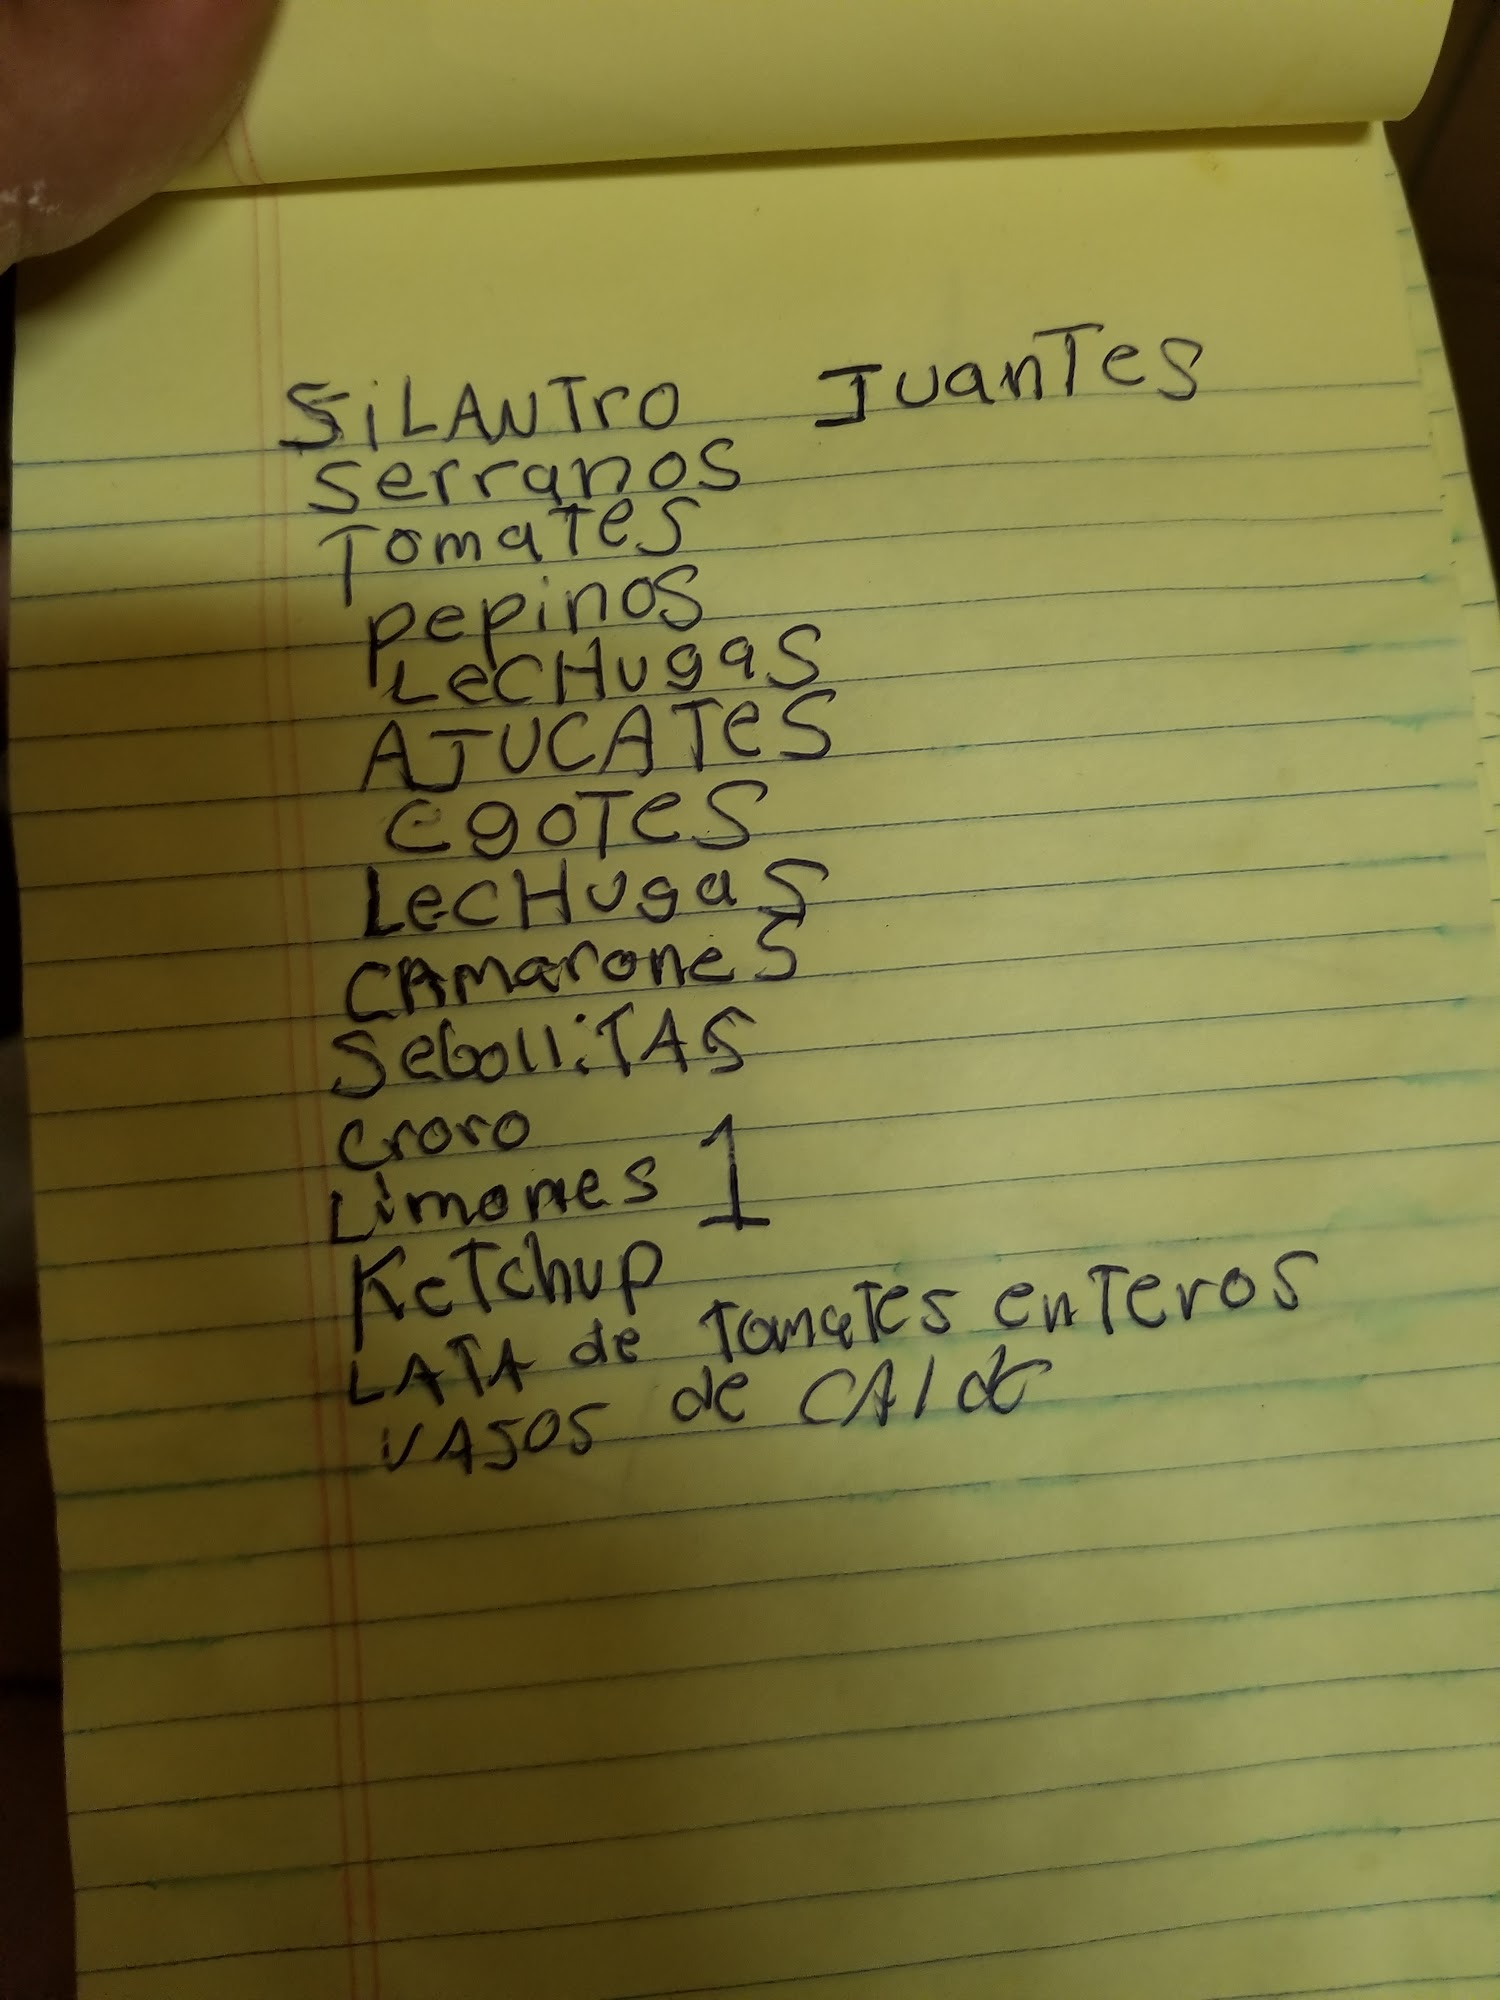 SiLANTrO JuanTes
serranos
TomaTes
pepinos
LecHugas
AJUCATeS
egoTes
LecHugas
CAmarones
SebolliTAS
croro
Limones 1
KeTchup
LATA de TomaTes enTeros
VASOS de CAldo